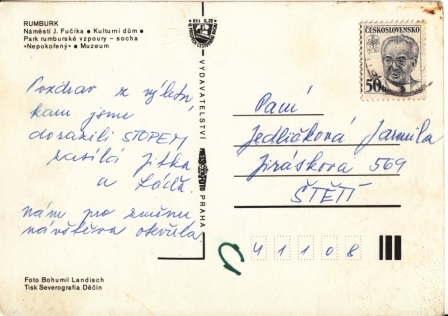 RUMBURK
Náměstí J. Fučíka • Kulturní dům •
Park rumburské vzpoury – socha
«Nepokořený» • Muzeum
ČESKOSLOVENSKO
50h
VYDAVATELSTVÍ
PRAHA
Pozdrav z výletu,
kam jsme
dorazili STOPEM
zasílá Jitka
a
nám pro změnu
návštěva
Paní
Jedličková Jarmila
Jiráskova 569
ŠTĚTÍ
41108
Foto Bohumil Landisch
Tisk Severografia Děčín